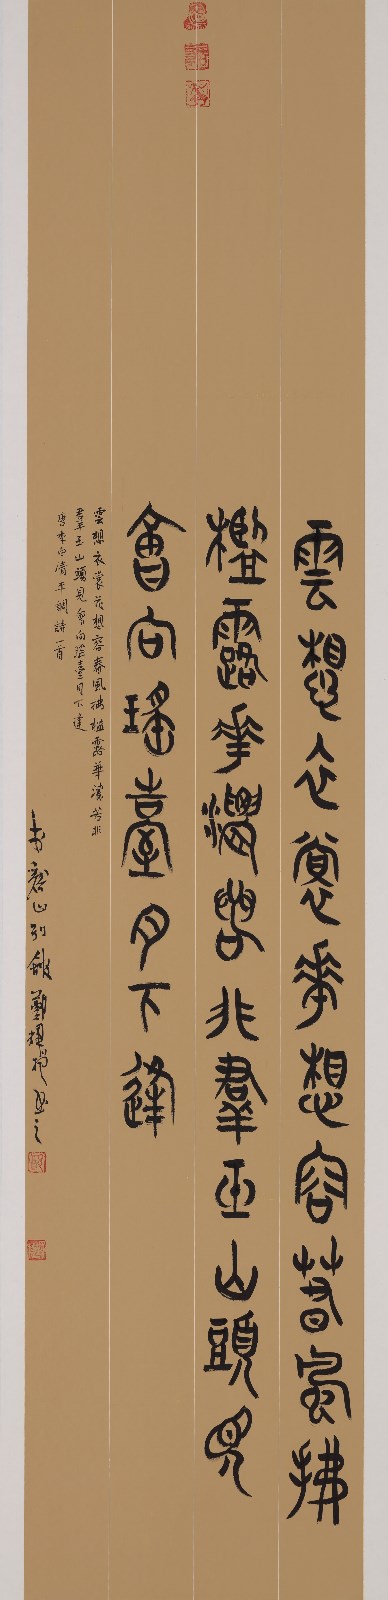 雲想衣裳華想容春風拂
檻露華濃若非羣玉山頭見
會向瑤臺月下逢
雲想衣裳花想容春風拂檻露華濃若非
羣玉山頭見會向瑤臺月下逢
唐李白清平調詩一首
山別館鄭書之